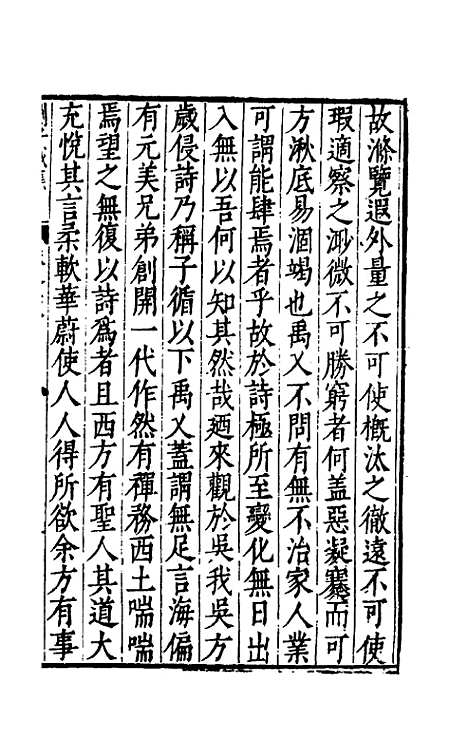 故滌覽遐外量之不可使概汰之徹遠不可使
瑕適察之渺微不可勝窮者何蓋惡凝蹇而可
方湫底易涸竭也禹乂不問有無不治家人業
可謂能肆焉者乎故於詩極所至變化無日出
入無以吾何以知其然哉廼來觀於吳我吳方
歲侵詩乃稱子循以下禹乂蓋謂無足言海偏
有元美兄弟創開一代作然有禪務西土喘喘
焉望之無復以詩爲者且西方有聖人其道大
充悅其言柔軟華蔚使人人得所欲余方有事